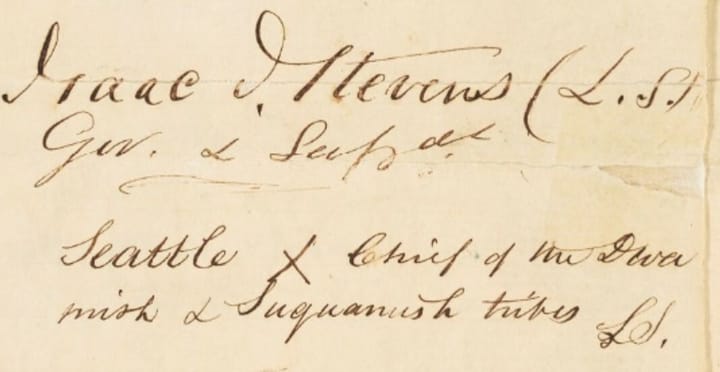 Isaac I. Stevens (L.S.)
Gov. & Supdt
Seattle X Chief of the Dwa
mish & Suquamish tribes L.S.